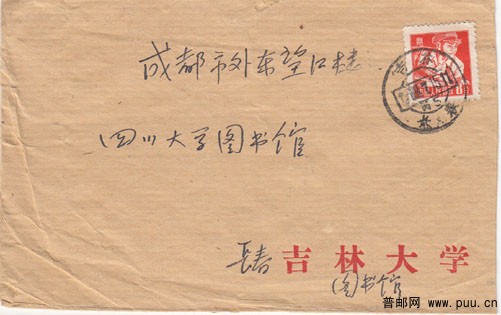 成都市外东望江楼
四川大学图书馆
长春 吉林大学
(图书馆
普邮网 www.puu.cn